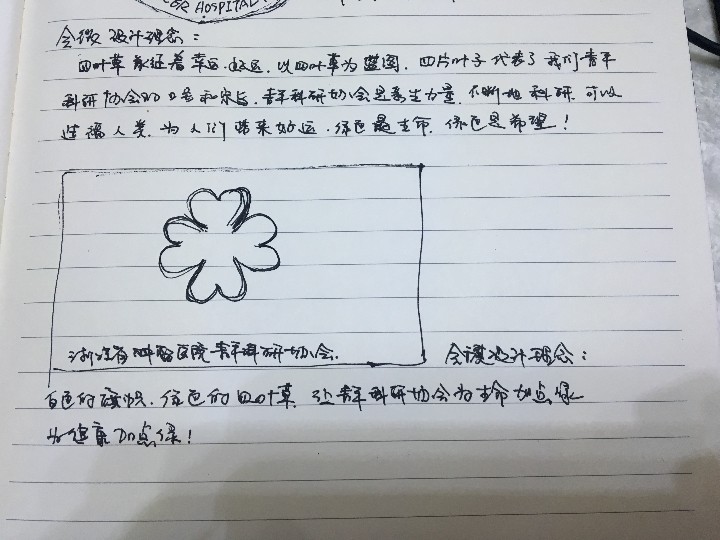 CER HOSPITAL
会徽设计理念：
四叶草象征着幸运，以四叶草为蓝图，四片叶子代表了我们青年
科研协会的口号和宗旨，青年科研协会是新生力量，不断地科研，可以
造福人类，为人们带来好运，绿色是生命，绿色是希望！
浙江省肿瘤医院青年科研协会．
会旗设计理念：
白色的旗帜，绿色的四叶草，让青年科研协会为生命加点绿
为健康加点绿！